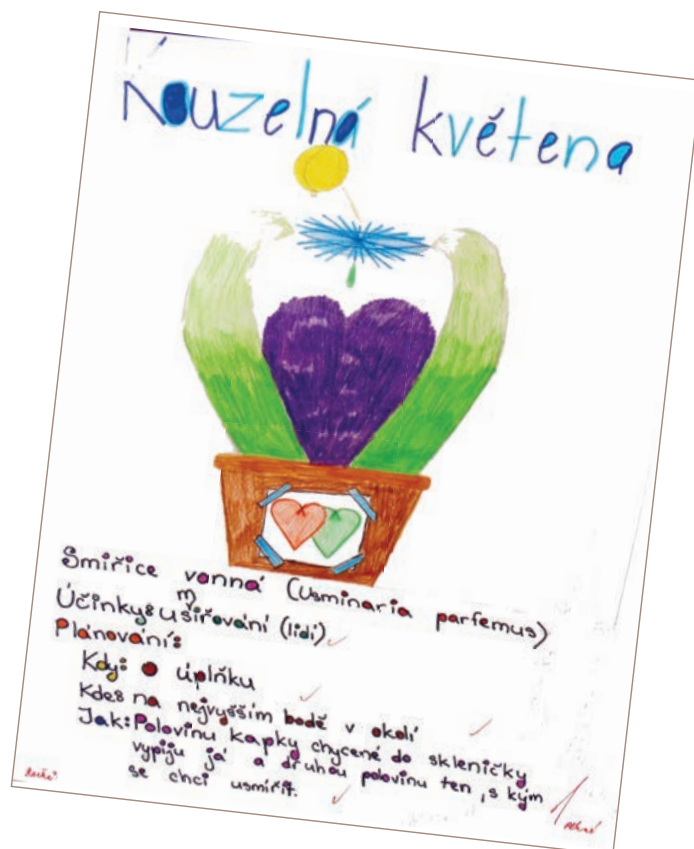 Kouzelná květena
Smiřice vonná (Usminaria parfemus)
Účinky: usmiřování (lidí)
Plánování:
Kdy: o úplňku
Kde: na nejvyšším bodě v okolí
Jak: Polovinu kapky chycené do skleničky
vypiju já a druhou polovinu ten, s kým
se chci usmířit.